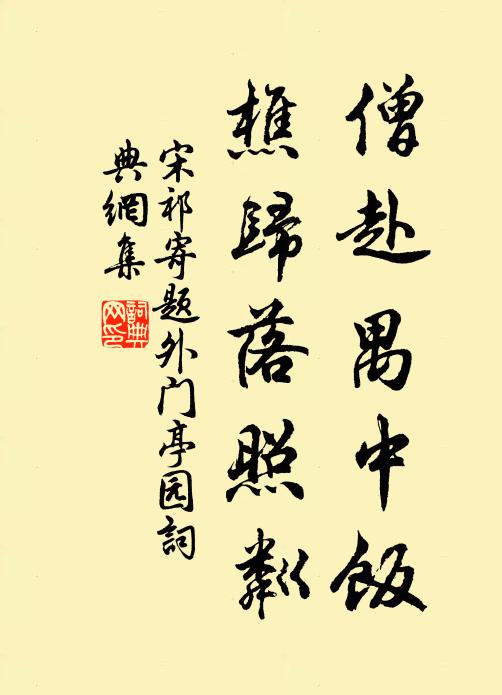 僧赴禺中飯
樵歸落照粼
宋祁寄題外门亭园詞
典網集
詞典
网印